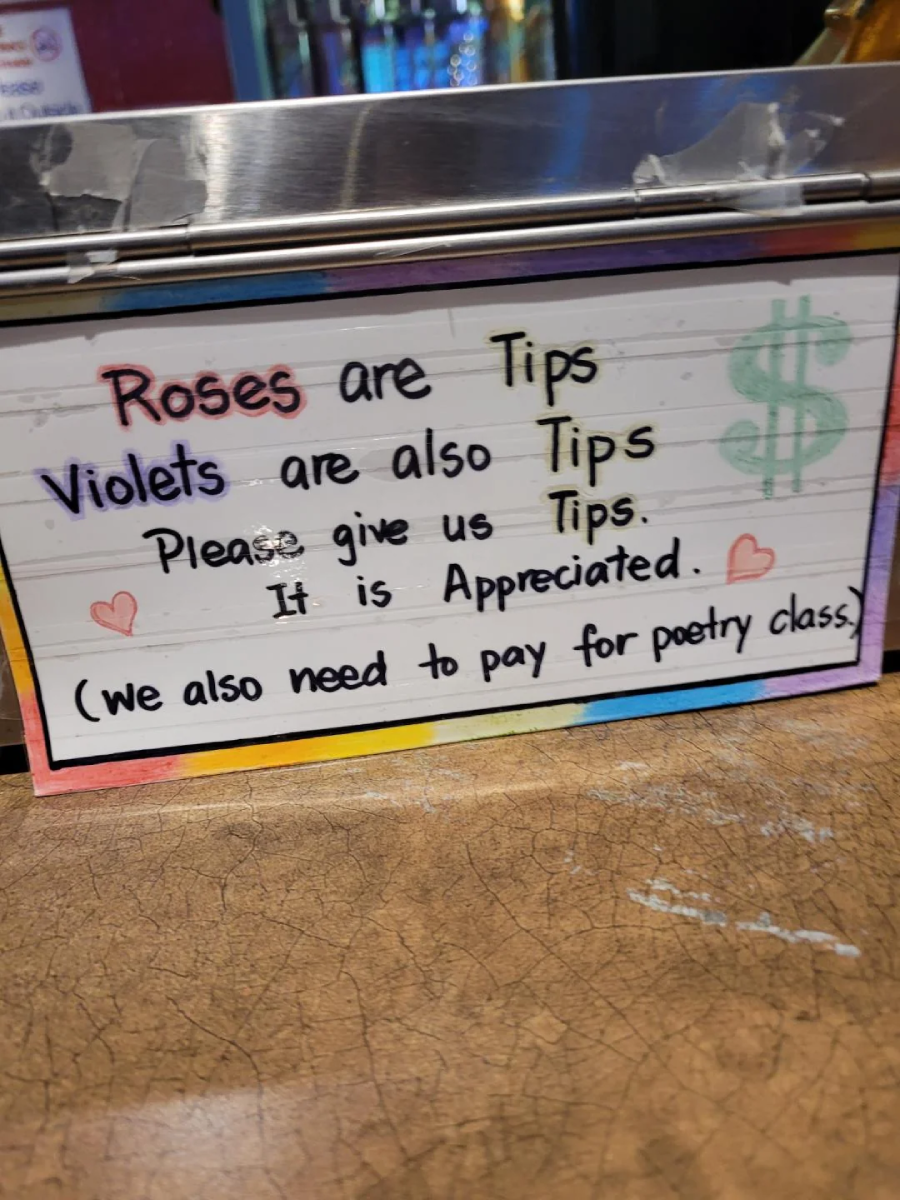 Roses are Tips
Violets are also Tips
Please give us Tips.
It is Appreciated.
(we also need to pay for poetry class.)
$